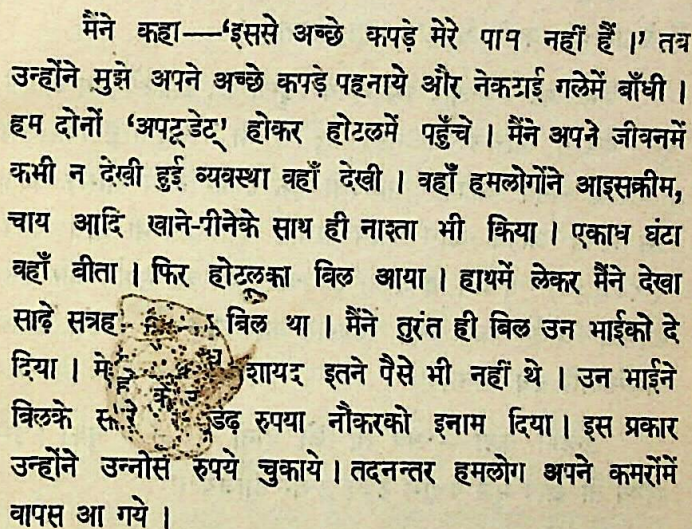 मैंने कहा—‘इससे अच्छे कपड़े मेरे पास नहीं हैं ।’ तब
उन्होंने मुझे अपने अच्छे कपड़े पहनाये और नेकटाई गलेमें बाँधी ।
हम दोनों ‘अपटूडेट्’ होकर होटलमें पहुँचे । मैंने अपने जीवनमें
कभी न देखी हुई व्यवस्था वहाँ देखी । वहाँ हमलोगोंने आइसक्रीम,
चाय आदि खाने-पीनेके साथ ही नाश्ता भी किया । एकाध घंटा
वहाँ बीता । फिर होटलका बिल आया । हाथमें लेकर मैंने देखा
साढ़े सत्रह बिल था । मैंने तुरंत ही बिल उन भाईको दे
दिया । शायद इतने पैसे भी नहीं थे । उन भाईने
बिलके डेढ़ रुपया नौकरको इनाम दिया । इस प्रकार
उन्होंने उन्नीस रुपये चुकाये । तदनन्तर हमलोग अपने कमरोंमें
वापस आ गये ।